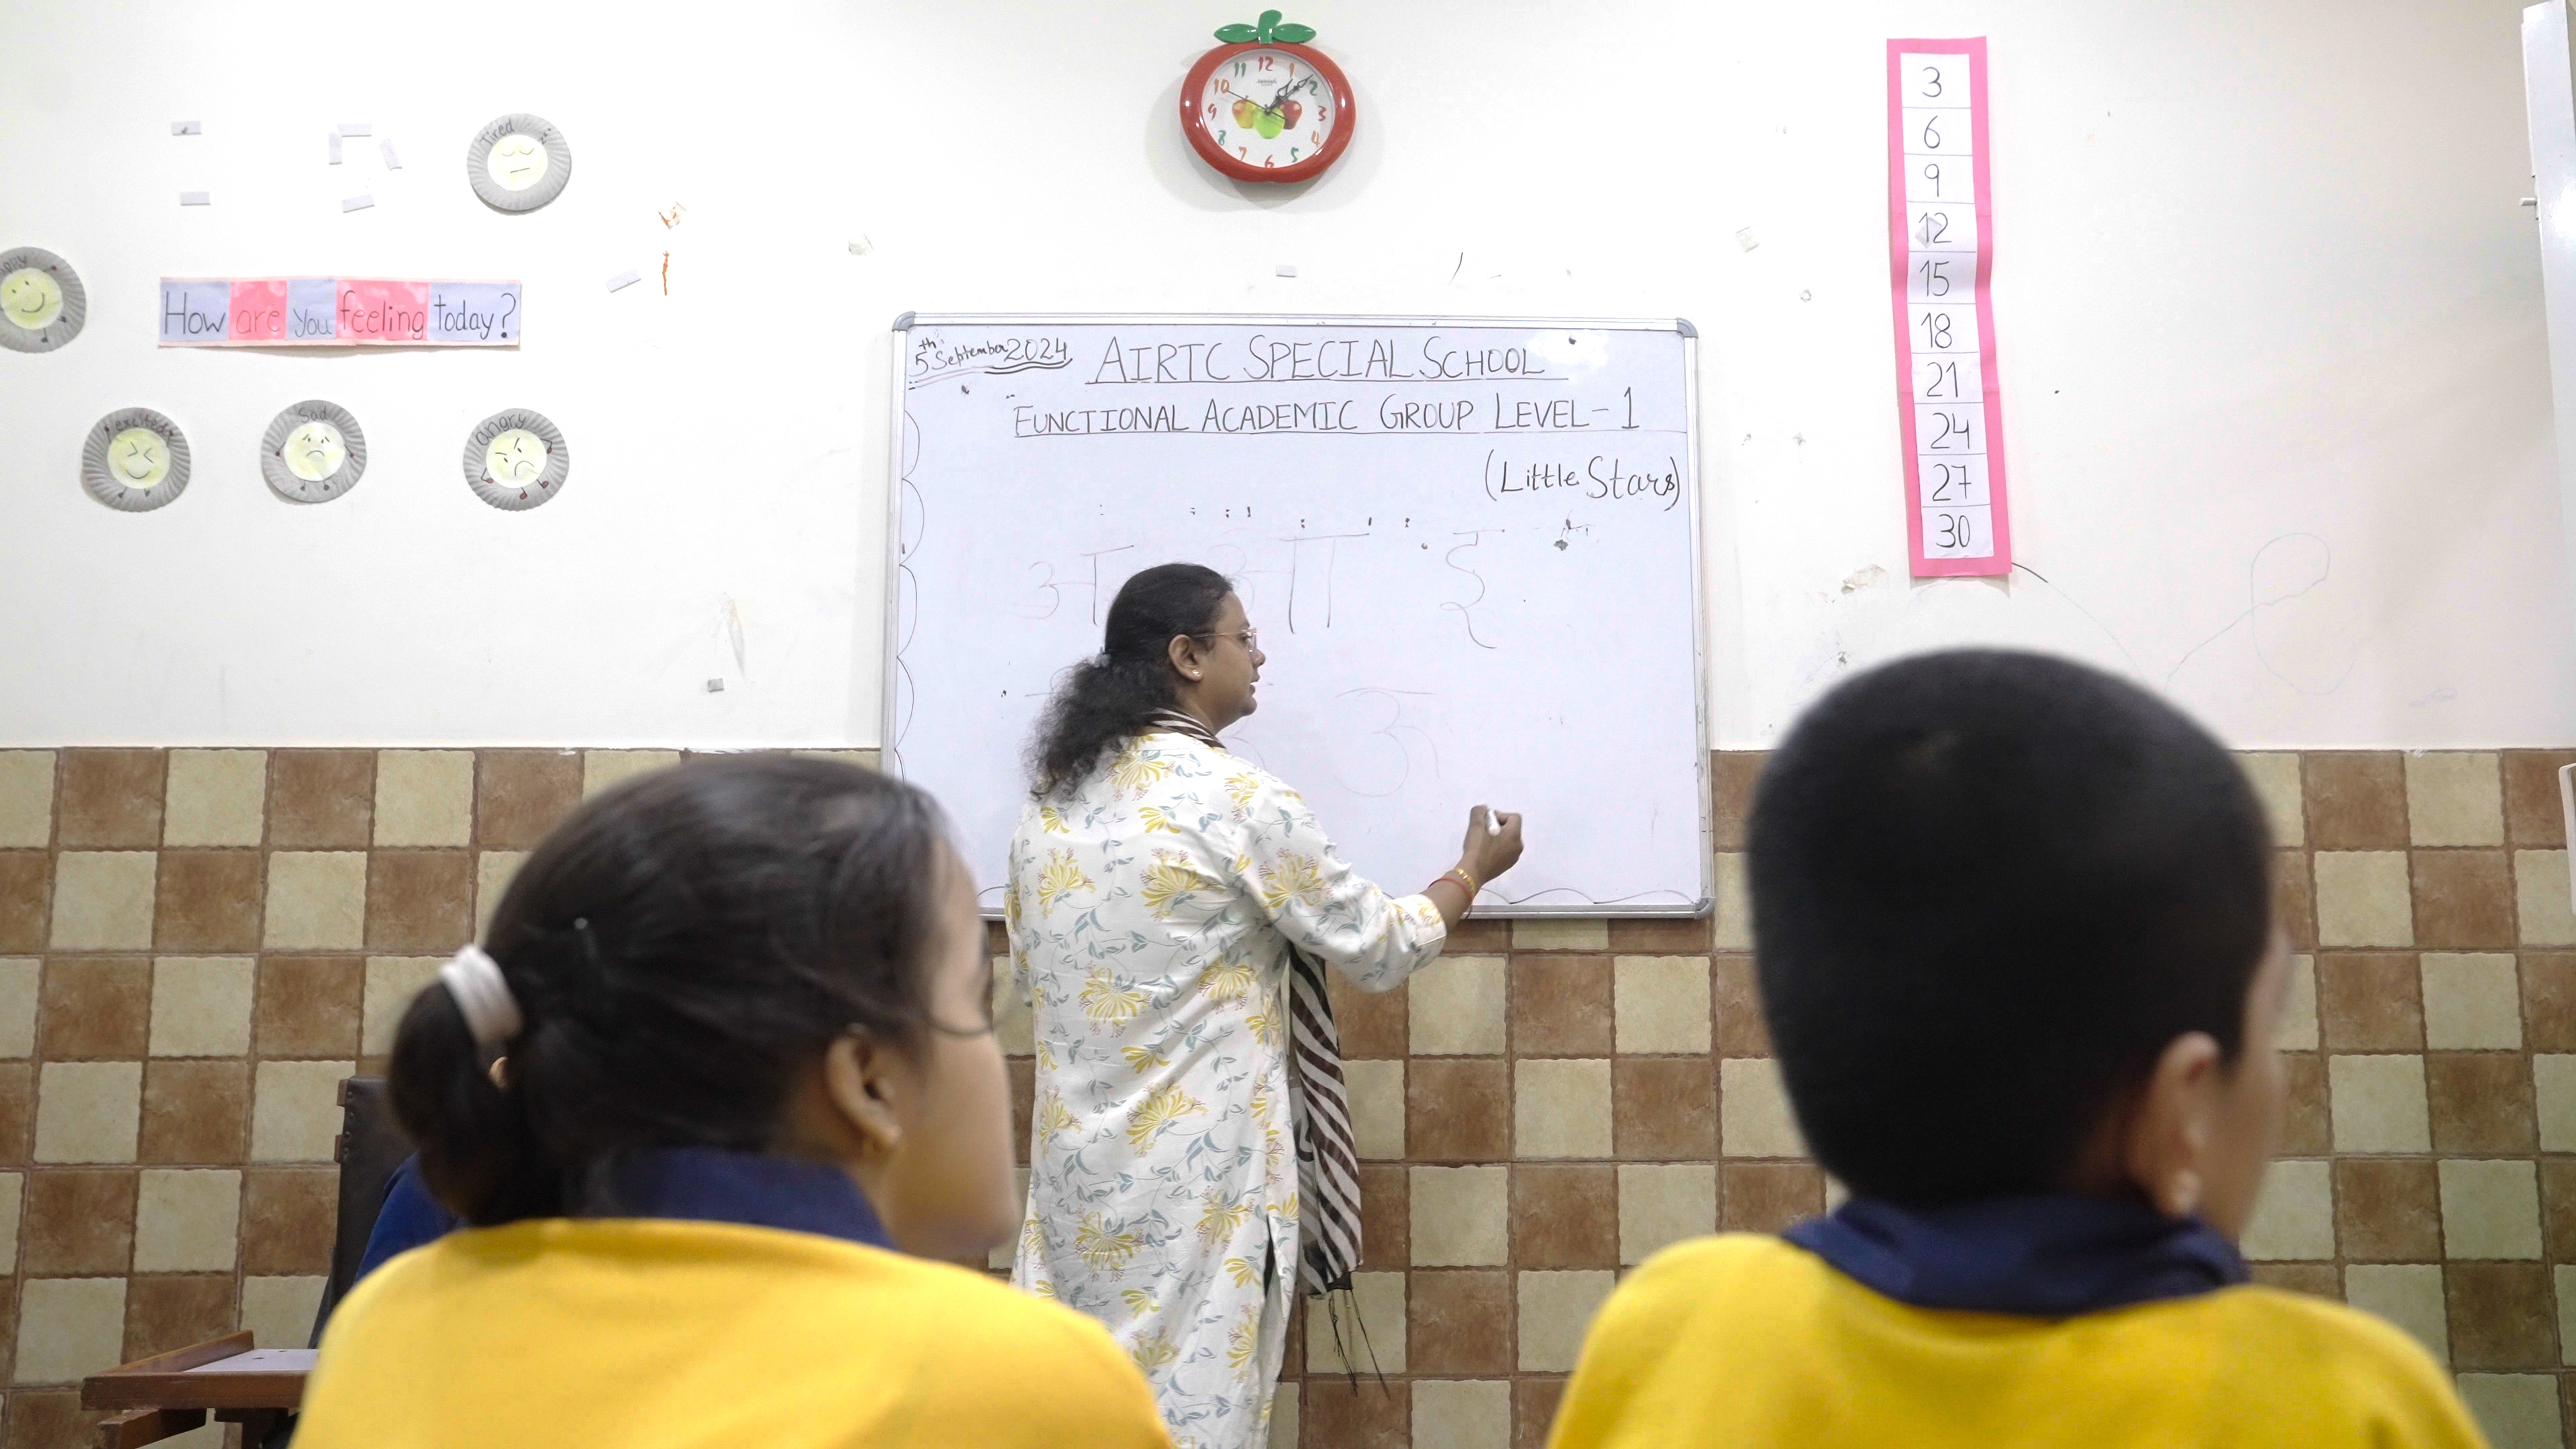 Tired
How are you feeling today?
excited
Sad
angry
12
1
2
3
4
5
6
7
8
9
10
11
5th September 2024
AIRTC SPECIAL SCHOOL
FUNCTIONAL ACADEMIC GROUP LEVEL-1
(Little Stars)
अ आ इ
उ
3
6
9
12
15
18
21
24
27
30